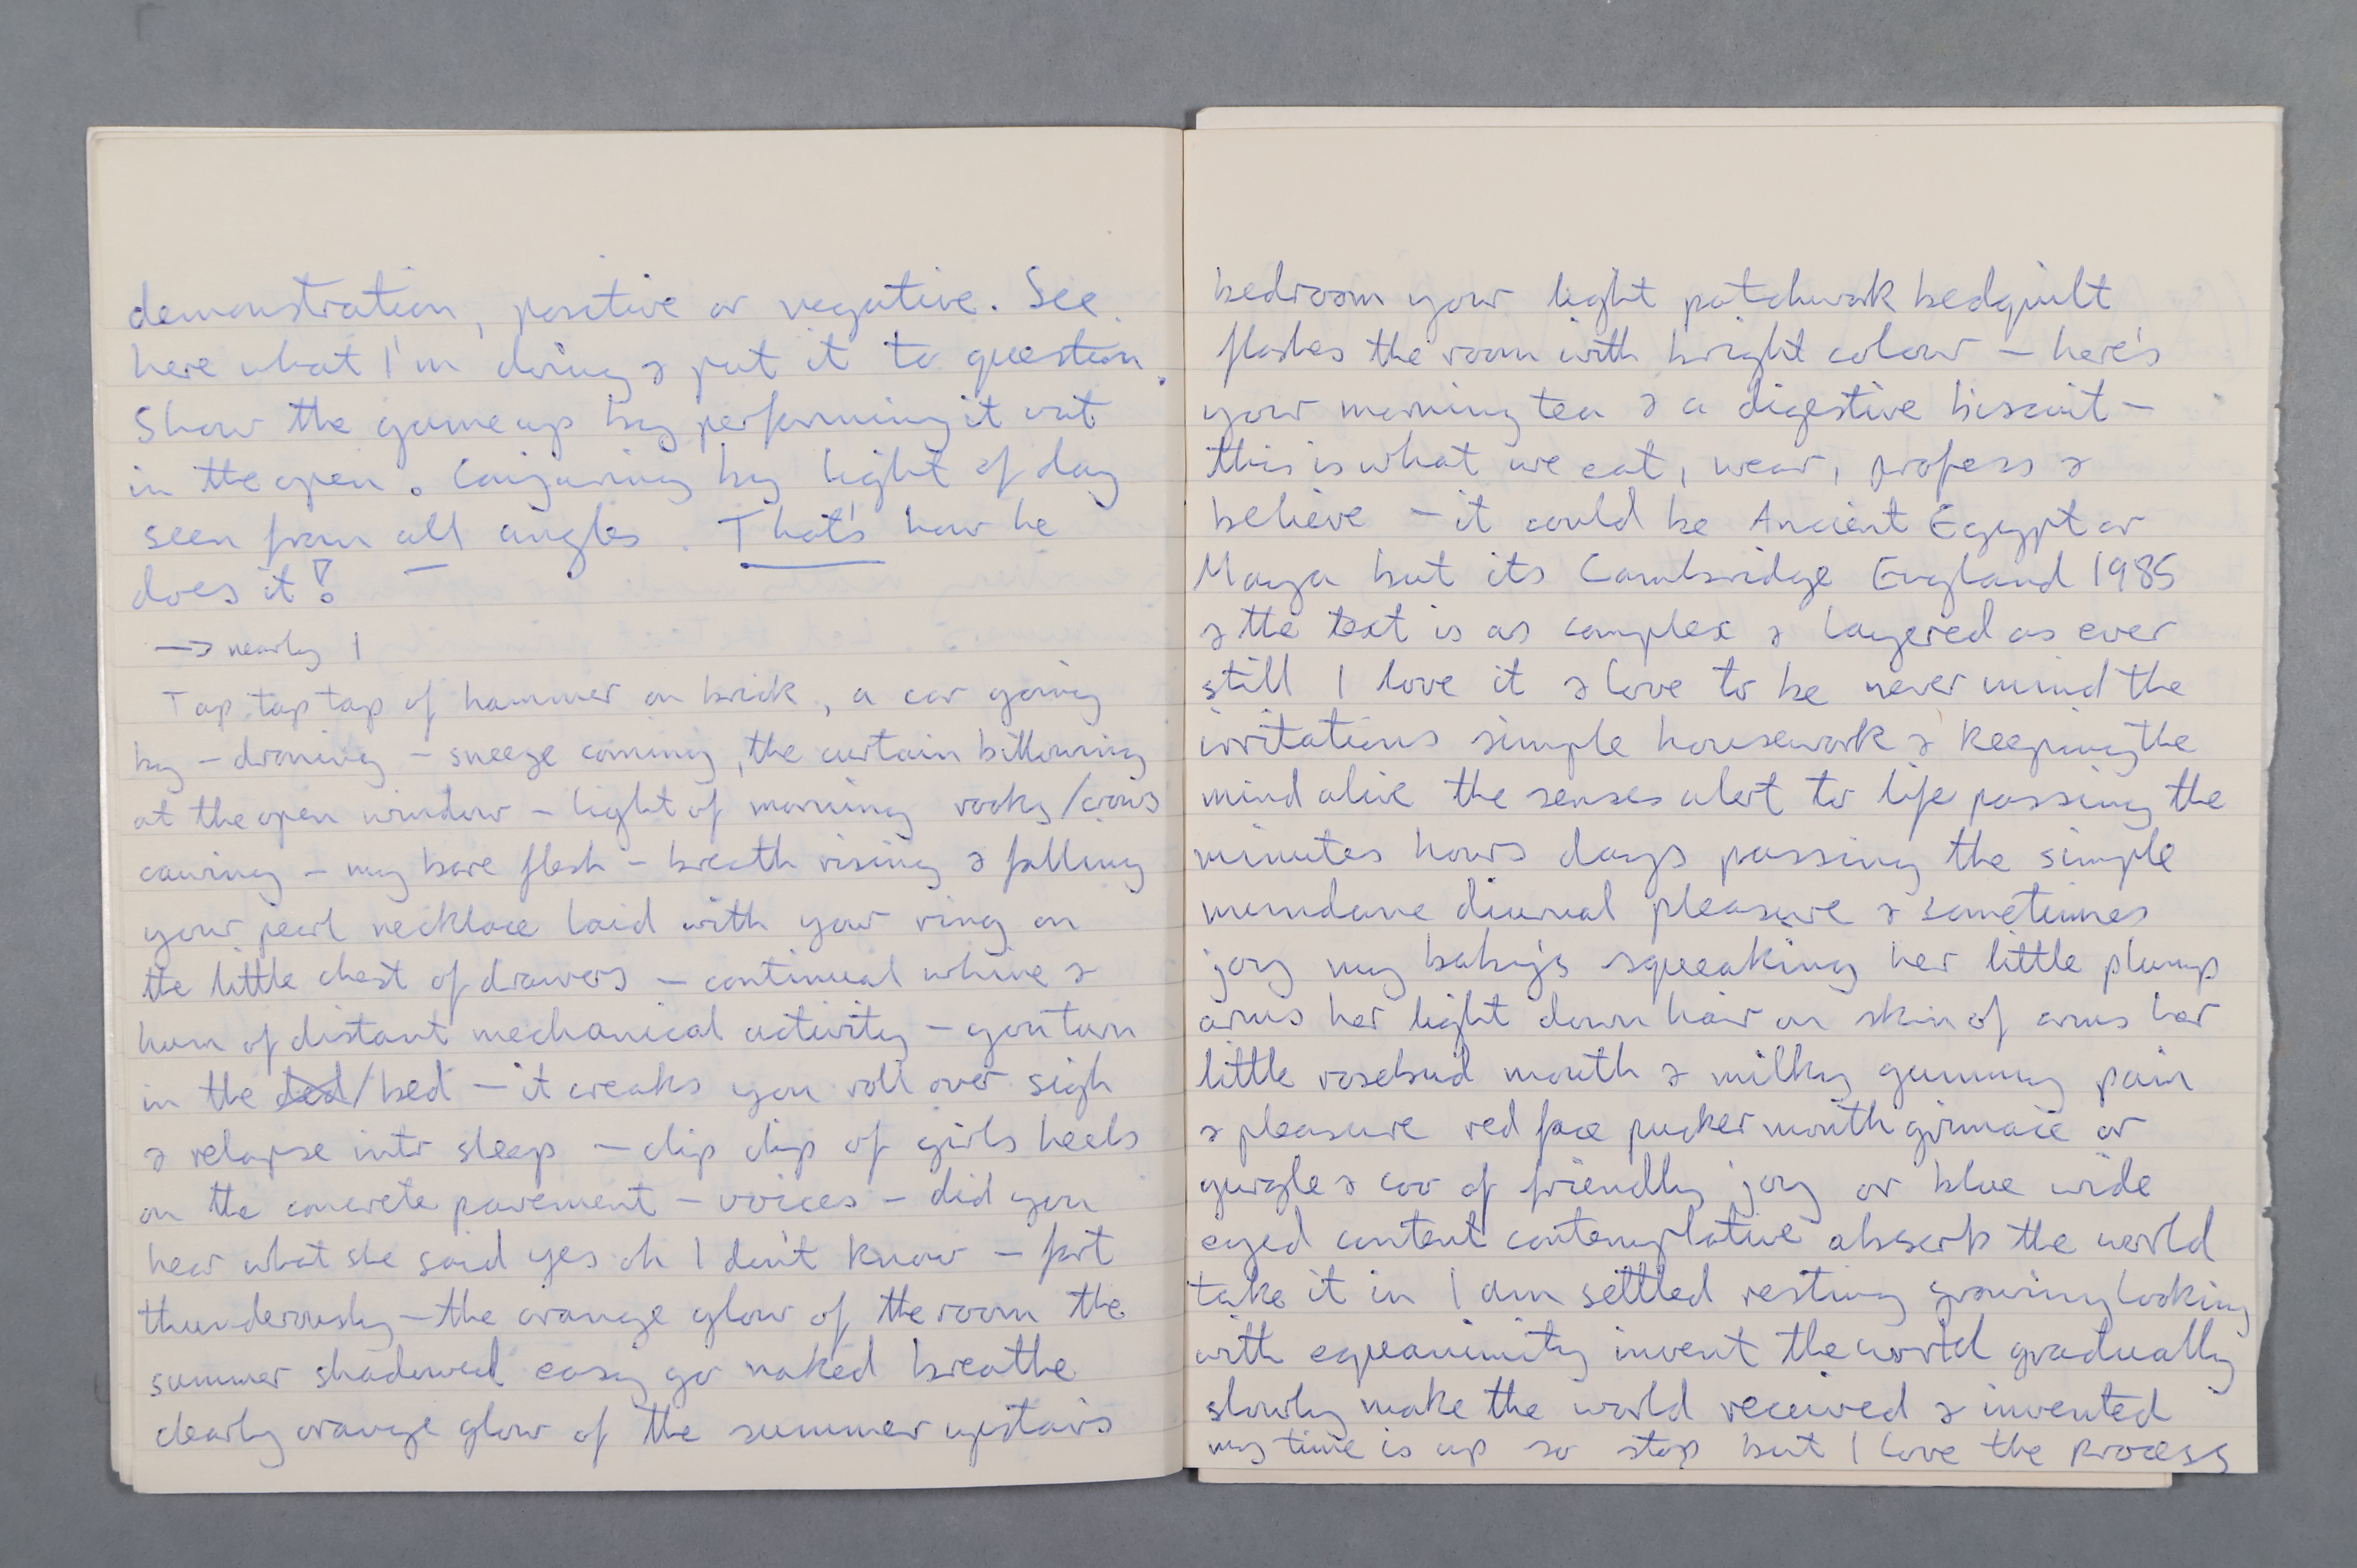 demonstration, positive or negative. See
here what I'm doing & put it to question.
Show the game up by performing it out
in the open. Conjuring by light of day
seen from all angles. That's how he
does it!
→ nearly 1
Tap tap tap of hammer on brick, a car going
by – droning – sneeze coming, the curtain billowing
at the open window – light of morning rooks/crows
cawing – my bare flesh – breath rising & falling
your pearl necklace laid with your ring on
the little chest of drawers – continual whine &
hum of distant mechanical activity – you turn
in the bed/bed – it creaks you roll over sigh
& relapse into sleep – clip clip of girls heels
on the concrete pavement – voices – did you
hear what she said yes oh I don't know – fart
thunderously – the orange glow of the room the
summer shadowed easy go naked breathe
clearly orange glow of the summer upstairs
bedroom your light patchwork bedquilt
flashes the room with bright colour – here's
your morning tea & a digestive biscuit –
this is what we eat, wear, profess &
believe – it could be Ancient Egypt or
Maya but its Cambridge England 1985
& the text is as complex & layered as ever
still I love it & love to be never mind the
irritations simple housework & keeping the
mind alive the senses alert to life passing the
minutes hours days passing the simple
mundane diurnal pleasure & sometimes
joy my baby's squeaking her little plump
arms her light down hair on skin of arms her
little rosebud mouth & milky gummy pain
& pleasure red face pucker mouth grimace or
gurgle & coo of friendly joy or blue wide
eyed content contemplative absorb the world
take it in I am settled resting growing looking
with equanimity invent the world gradually
slowly make the world received & invented
my time is up so stop but I love the process